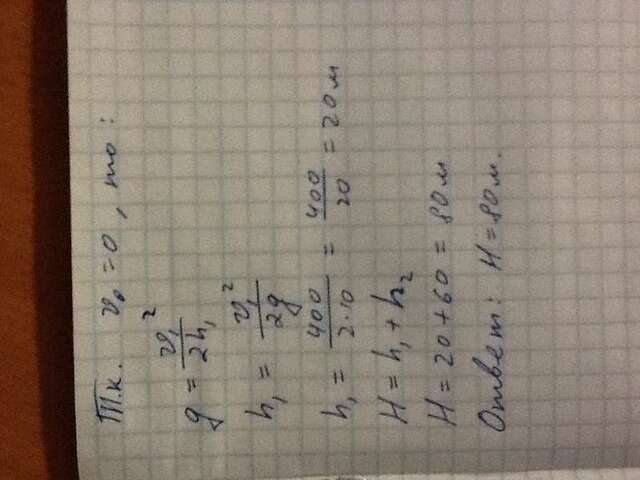 Т.к. v₀ = 0, то:
g = v₁²/2h₁
h₁ = v₁²/2g
h₁ = 400/2·10 = 400/20 = 20м
H = h₁ + h₂
H = 20 + 60 = 80м
Ответ: H = 80м.